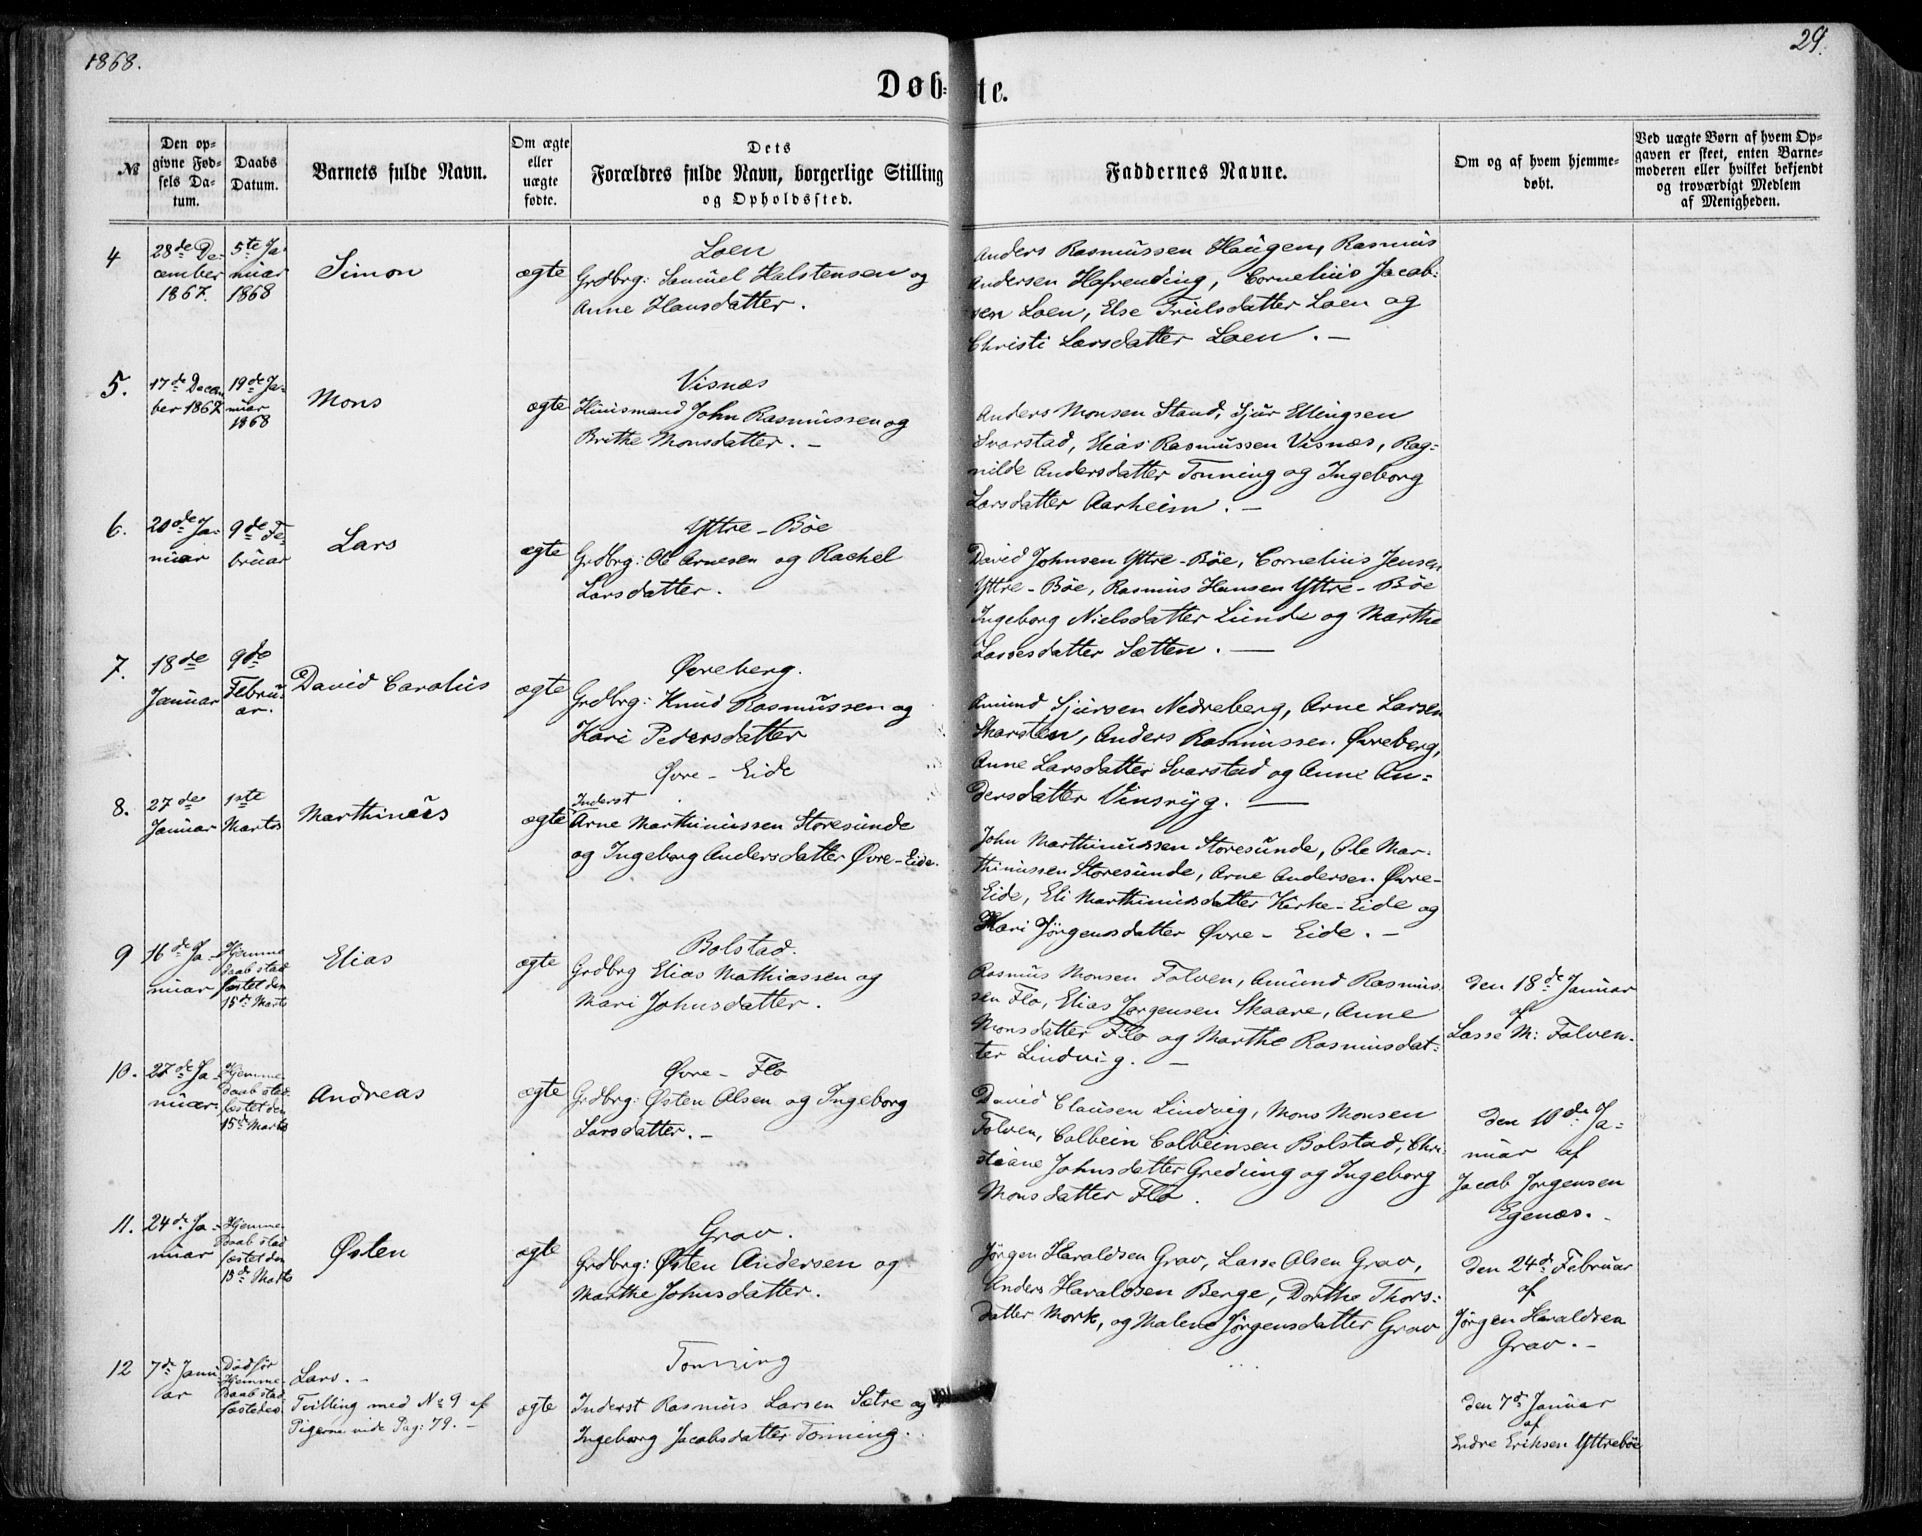 1868.
29.
Døbte.
№
Den opgivne Fødsels Datum.
Daabs Datum.
Barnets fulde Navn.
Om ægte eller uægte fødte.
Dets Forældres fulde Navn, borgerlige Stilling og Opholdssted.
Faddernes Navne.
Om og af hvem hjemmedøbt.
Ved uægte Børn af hvem Opgaven er skeet, enten Barnemoderen eller hvilket bekjendt og troværdigt Medlem af Menigheden.
4
28de De-
cember
1867.
5te Ja-
nuar
1868
Simon
ægte
Loen
Grdbrg: Samuel Halstensen og
Anne Hansdatter.
Anders Rasmussen Haugen, Rasmus
Andersen Hafrending, Cornelius Jacob-
sen Loen, Else Trulsdatter Loen og
Christi Larsdatter Loen. —
5.
17de Decem
ber 1867.
19de Ja-
nuar
1868
Mons
ægte
Visnæs
Huusmand John Rasmussen og
Brithe Monsdatter. —
Anders Monsen Staud, Sjur Ellingsen
Svarstad, Elias Rasmussen Visnæs, Rag-
nilde Andersdatter Tonning og Ingeborg
Larsdatter Aarheim. —
6.
20de Ja-
nuar
9de Fe-
bruar
Lars
ægte
Yttre-Böe
Grdbrg: Ole Arnesen og Rachel
Larsdatter.
David Johnsen Yttre-Böe, Cornelius Jensen
Yttre-Böe, Rasmus Hansen Yttre-Böe
Ingeborg Nielsdatter Lunde og Marthe
Lassesdatter Sætten. —
7.
18de
Januar
9de
Febru-
ar.
David Carolus
ægte
Øvreberg.
Grdbrg: Knud Rasmussen og
Kari Pedersdatter
Amund Sjursen Nedreberg, Arne Larsen
Skarsten, Anders Rasmussen Øvreberg,
Anne Larsdatter Svarstad og Anne An-
dersdatter Vinsryg. —
8.
27de
Januar
1ste
Marts
Marthinus
ægte
Øvre-Eide
Inderst
Arne Marthinussen Storesunde
og Ingeborg Andersdatter Øvre-Eide.
John Marthinussen Storesunde, Ole Mar-
thinussen Storesunde, Arne Andersen Øvre-
Eide, Eli Marthinusdatter Kirke-Eide og
Kari Jörgensdatter Øvre-Eide. —
9
16de Ja-
nuar
Hjemme
daab stad
fæstet den
15de Marts
Elias
ægte
Bolstad.
Grdbrg Elias Mathiassen og
Mari Johnsdatter.
Rasmus Monsen Folven, Amund Rasmus-
sen Flo, Elias Jørgensen Skaare, Anne
Monsdatter Flo og Marthe Rasmusdat-
ter Lindvig. —
den 18de Januar
af
Lasse M: Folven.
10.
27de Ja-
nuar
Hjemme
daab stad
fæstet den
15de Marts
Andreas
ægte
Øvre-Flo
Grdbrg: Østen Olsen og Ingeborg
Larsdatter. —
David Clausen Lindvig, Mons Monsen
Folven, Colbein Colbeinsen Bolstad, Chri-
stiane Johnsdatter Greding og Ingeborg
Monsdatter Flo.
den 10de Ja-
nuar af
Jacob Jørgensen
Egenæs. -
11.
24de Ja-
nuar
Hjemme-
Daab stad
fæstet den
15de Marts
Østen
ægte
Grav.
Grdbrg: Østen Andersen og
Marthe Johnsdatter.
Jørgen Haraldsen Grav, Lasse Olsen Grav,
Anders Haraldsen Berge, Dorthe Thors-
datter Mork, og Malene Jörgensdatter Grav
den 24de Februar
af
Jørgen Haraldsen
Grav. —
12
7de Janu
ar
Død før
Hjemme-
Daab stad
fæstedes
Lars. -
Tvilling med No 9 af
Pigerne vide Pag: 79. —
ægte
Tonning
Inderst Rasmus Larsen Sætre og
Ingeborg Jacobsdatter Tonning.
den 7de Januar
af
Endre Eriksen Yttreböe